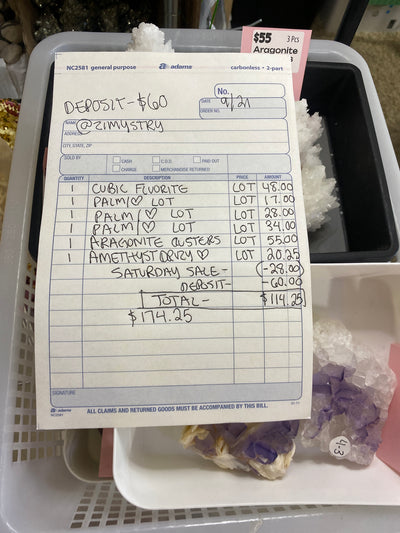 $55 3 Pcs
Aragonite
NC2581 general purpose adams carbonless • 2-part
No.
DEPOSIT-$60
DATE 9/21
ORDER NO.
NAME @ZIMYSTRY
ADDRESS
CITY, STATE, ZIP
SOLD BY CASH C.O.D. PAID OUT
CHARGE MERCHANDISE RETURNED
QUANTITY DESCRIPTION PRICE AMOUNT
1 CUBIC FLUORITE LOT 48.00
1 PALM/♡ LOT LOT 17.00
1 PALM/♡ LOT LOT 28.00
1 PALM/♡ LOT LOT 34.00
1 ARAGONITE CLUSTERS LOT 55.00
1 AMETHYST DRUZY ♡ LOT 20.25
SATURDAY SALE- -28.00
DEPOSIT- -60.00
TOTAL- $114.25
$174.25
SIGNATURE
adams
NC2581
ALL CLAIMS AND RETURNED GOODS MUST BE ACCOMPANIED BY THIS BILL.
4-3